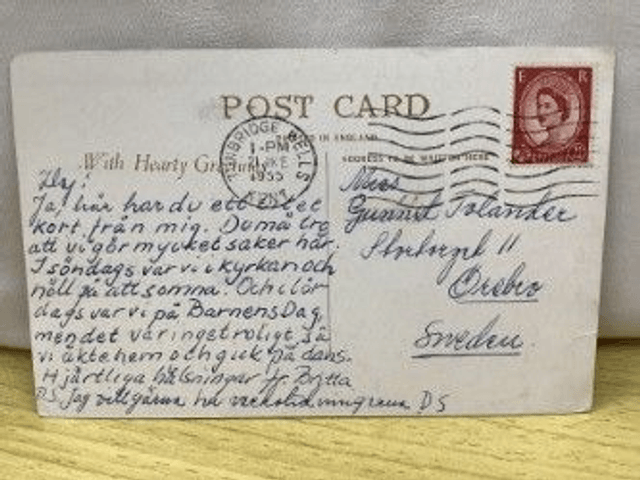 POST CARD
TUNBRIDGE WELLS
1-PM
1955
E R
With Hearty
ADDRESS TO BE WRITTEN HERE
Hej!
Ja, här har du ett
kort från mig. Du må tro
att vi gör mycket saker här.
I söndags var vi i kyrkan och
höll på att somna. Och i lör
dags var vi på Barnens Dag,
men det var inget roligt, så
vi åkte hem och gick på dans.
Hjärtliga hälsningar fr. Britta
P.S. Jag vill gärna ha D S
Miss
Gunnel Tolander
Stortorget 11
Örebro
Sweden.